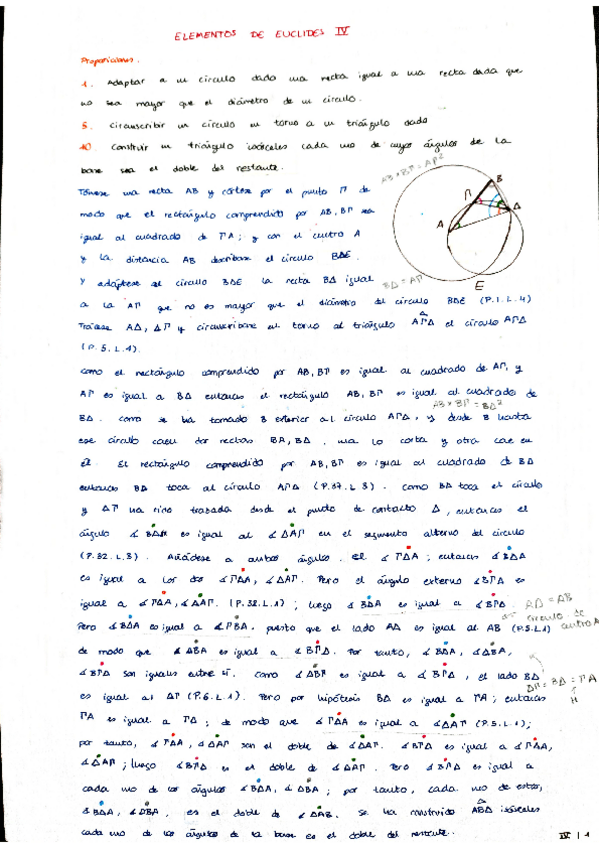 ELEMENTOS DE EUCLIDES IV
Proposiciones.
1. Adaptar a un círculo dado una recta igual a una recta dada que
no sea mayor que el diámetro de un círculo.
5. Circunscribir un círculo en torno a un triángulo dado
10. Construir un triángulo isósceles cada uno de cuyos ángulos de la
base sea el doble del restante.
AB × BΓ = AΓ²
Tómese una recta AB y córtese por el punto Γ de
modo que el rectángulo comprendido por AB, BΓ sea
igual al cuadrado de ΓA; y con el centro A
y la distancia AB descríbase el círculo BΔE.
Y adáptese al círculo BΔE la recta BΔ igual
BΔ = AΓ
A B Γ Δ E
a la AΓ que no es mayor que el diámetro del círculo BΔE (P.1.L.4)
Trácese AΔ, ΔΓ y circunscríbase en torno al triángulo AΓΔ el círculo AΓΔ
(P.5.L.4).
Como el rectángulo comprendido por AB, BΓ es igual al cuadrado de AΓ, y
AΓ es igual a BΔ entonces el rectángulo AB, BΓ es igual al cuadrado de
AB × BΓ = BΔ²
BΔ. Como se ha tomado B exterior al círculo AΓΔ, y desde B hasta
ese círculo caen dos rectas BA, BΔ, una lo corta y otra cae en
él. El rectángulo comprendido por AB, BΓ es igual al cuadrado de BΔ
entonces BΔ toca al círculo AΓΔ (P.37.L.3). Como BΔ toca el círculo
y ΔΓ ha sido trazada desde el punto de contacto Δ, entonces el
ángulo ∡ BΔΓ es igual al ∡ ΔAΓ en el segmento alterno del círculo
(P.32.L.3). Añádese a ambos ángulos el ∡ ΓΔA; entonces ∡ BΔA
es igual a los dos ∡ ΓΔA, ∡ ΔAΓ. Pero el ángulo externo ∡ BΓΔ es
igual a ∡ ΓΔA, ∡ ΔAΓ. (P.32.L.1); luego ∡ BΔA es igual a ∡ BΓΔ.
AΔ = AB
círculo de centro A
Pero ∡ BΔA es igual a ∡ ΓBA. puesto que el lado AΔ es igual al AB (P.5.L.1)
de modo que ∡ ΔBA es igual a ∡ BΓΔ. Por tanto, ∡ BΔA, ∡ ΔBA,
∡ BΓΔ son iguales entre sí. Como ∡ ΔBΓ es igual a ∡ BΓΔ, el lado BΔ
ΔΓ = BΔ = ΓA
H
es igual al ΔΓ (P.6.L.1). Pero por hipótesis BΔ es igual a ΓA; entonces
ΓA es igual a ΓΔ; de modo que ∡ ΓΔA es igual a ∡ ΔAΓ (P.5.L.1);
por tanto, ∡ ΓΔA, ∡ ΔAΓ son el doble de ∡ ΔAΓ. ∡ BΓΔ es igual a ∡ ΓΔA,
∡ ΔAΓ; luego ∡ BΓΔ es el doble de ∡ ΔAΓ. Pero ∡ BΓΔ es igual a
cada uno de los ángulos ∡ BΔA, ∡ ΔBA; por tanto, cada uno de estos,
∡ BΔA, ∡ ΔBA, es el doble de ∡ ΔAB. Se ha construido ABΔ isósceles
cada uno de los ángulos de la base es el doble del restante.
IV | 1